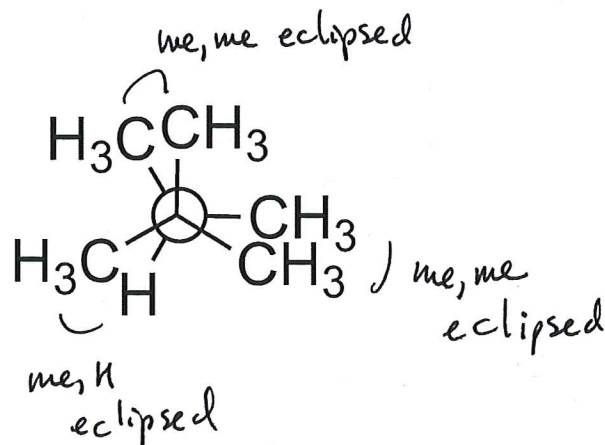 me, me eclipsed
H₃C CH₃
CH₃
H₃C H CH₃
me, me
eclipsed
me, H
eclipsed